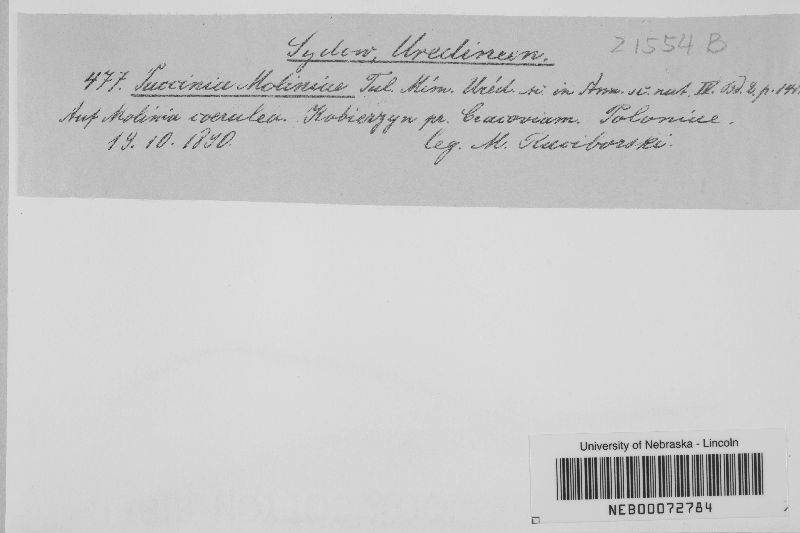 Sydow, Uredineen.
21554 B
477. Puccinia Moliniae Tul. Mém. Uréd. in Ann. sc. nat. IV. Bd. 2, p. 141.
Auf Molinia coerulea. Kobierzyn pr. Cracoviam. Poloniae.
19. 10. 1890. leg. M. Raciborski.
University of Nebraska - Lincoln
NEB00072784